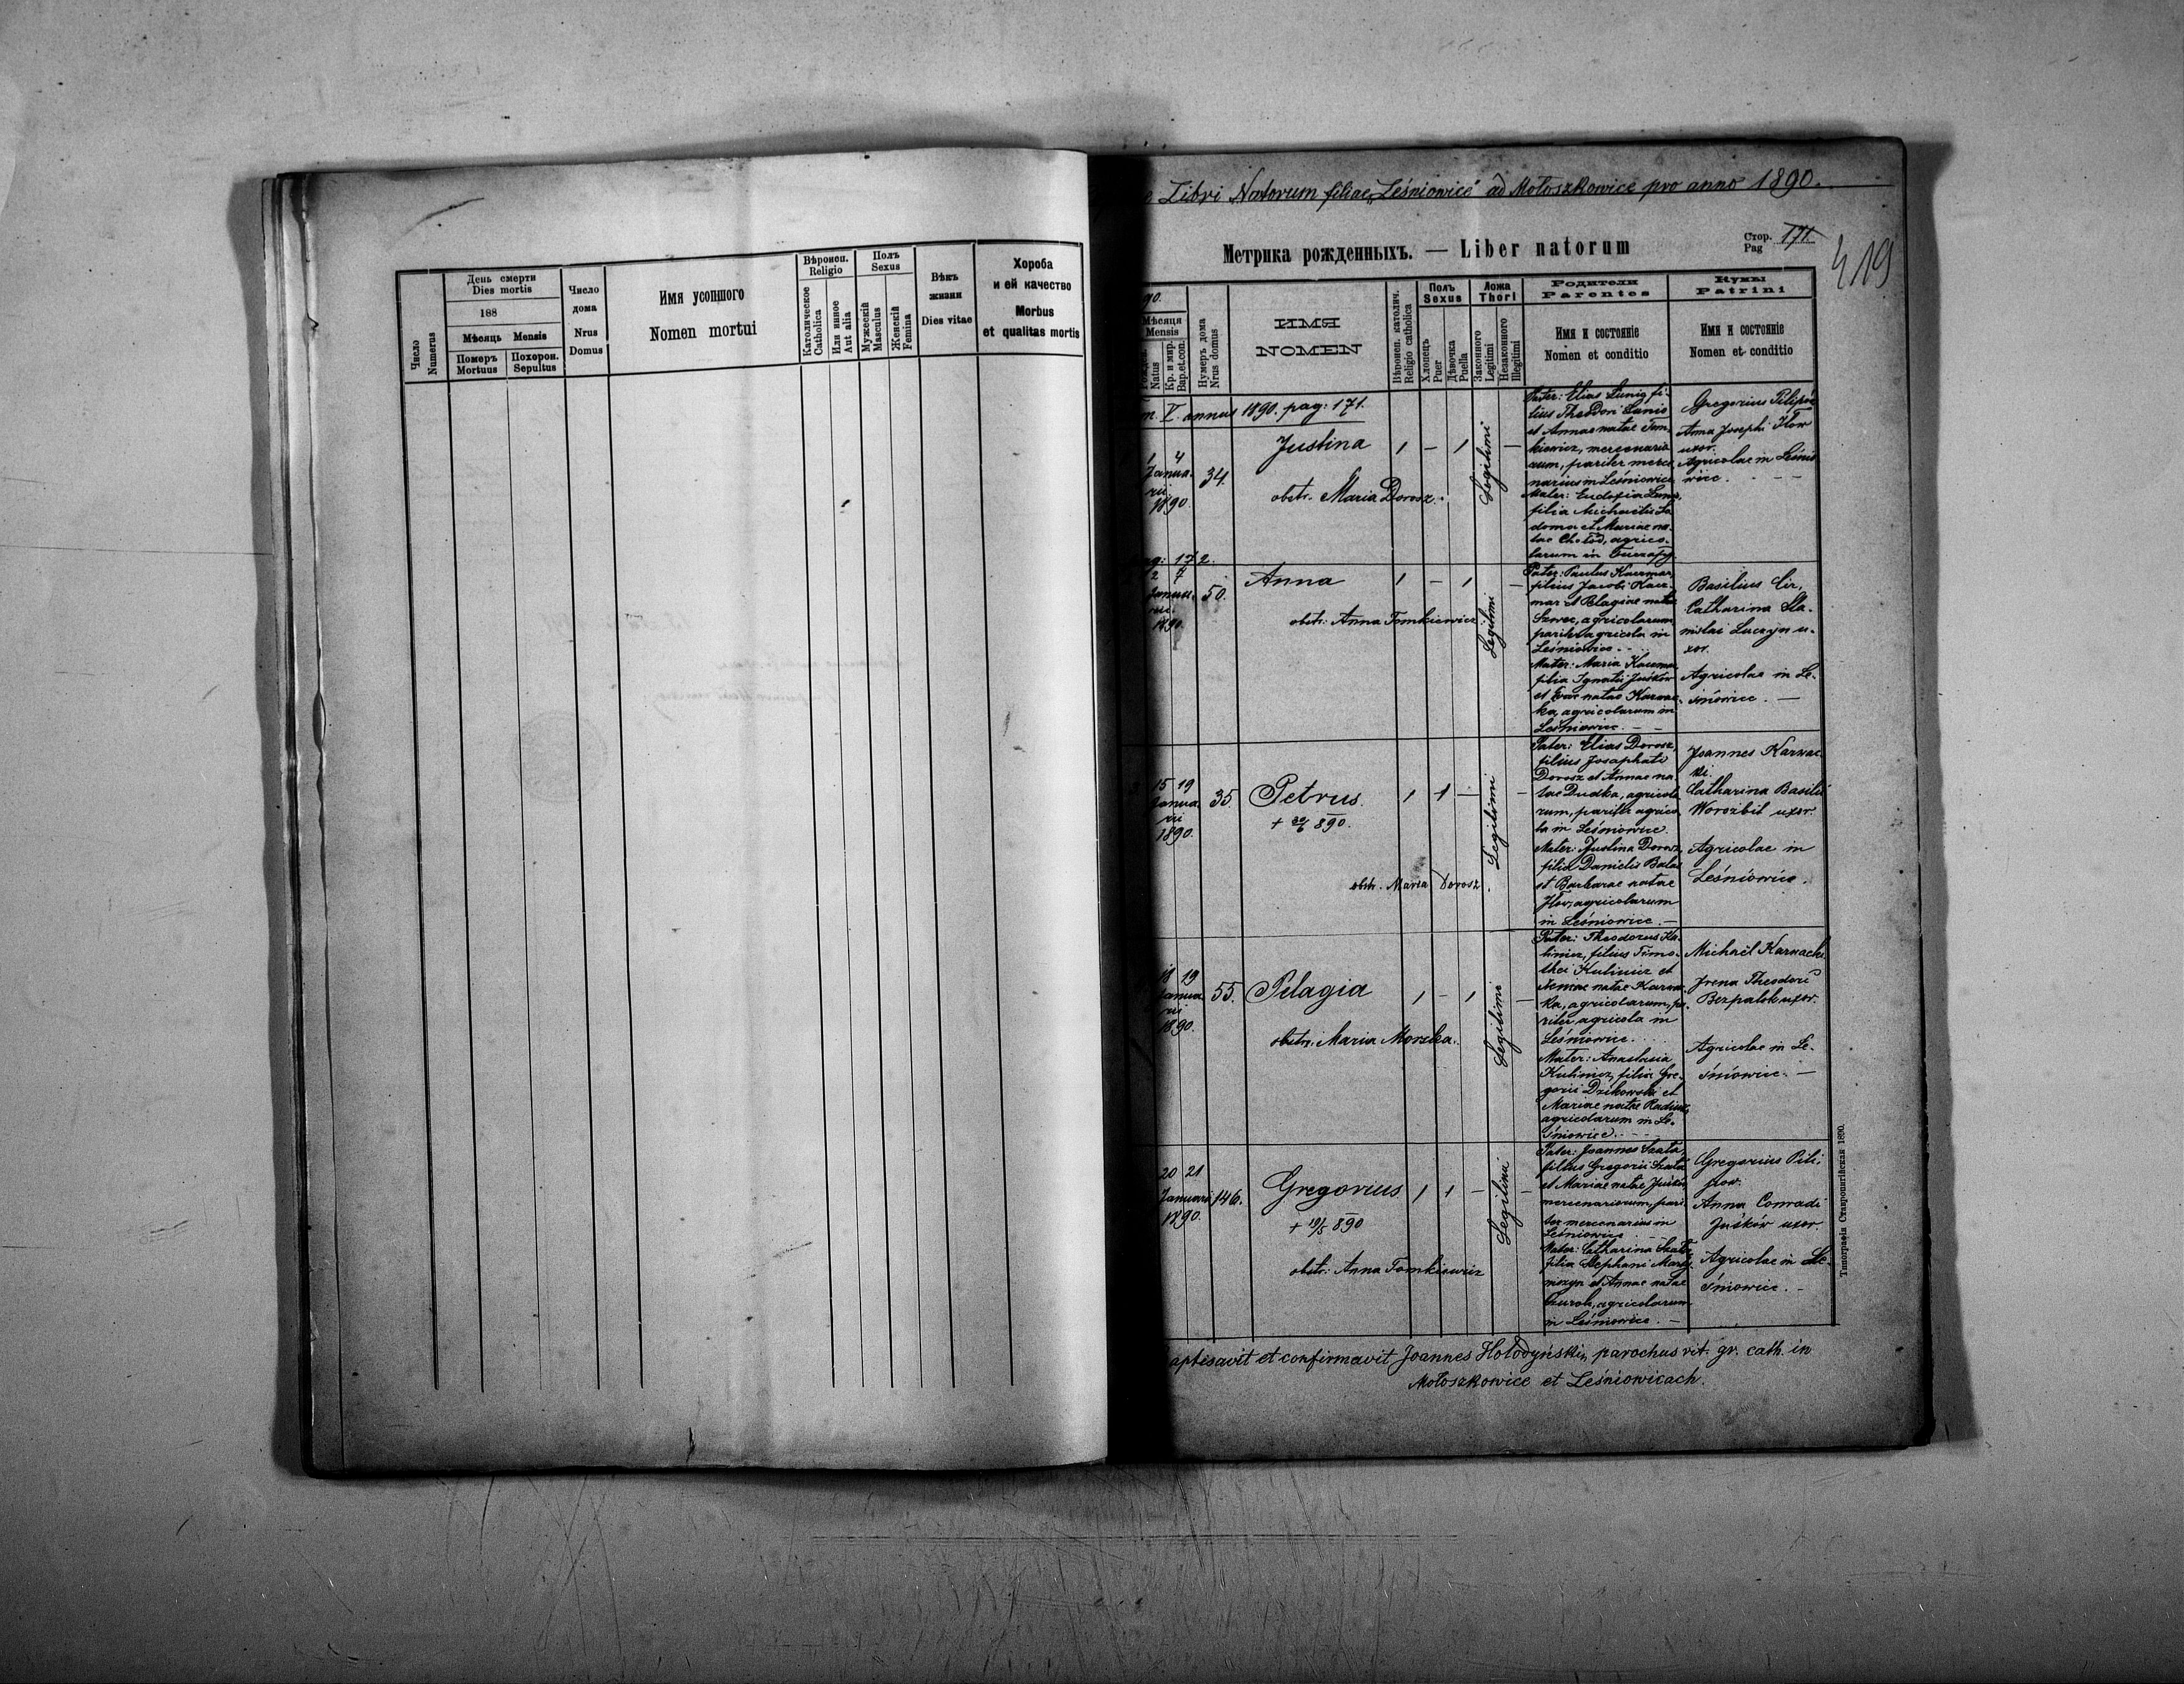 Число
Numerus
День смерти
Dies mortis
188
Мѣсяць Mensis
Померъ
Mortuus
Похорон.
Sepultus
Число
дома
Nrus
Domus
Имя усопшого
Nomen mortui
Вѣроисп.
Religio
Католическое
Catholica
Или инное
Aut alia
Полъ
Sexus
Мужескій
Masculus
Женскій
Femina
Вѣкъ
жизни
Dies vitae
Хороба
и ей качество
Morbus
et qualitas mortis
Libri Natorum filiae „Leśniowice" ad Mołoszkowice pro anno 1890.
Метрика рожденныхъ. — Liber natorum
Стор.
Pag 171
419
90.
Мѣсяця
Mensis
Natus
Кр. и мир.
Bap.et.con.
Нумеръ дома
Nrus domus
ИМЯ
NOMEN
Вѣроисп. католич.
Religio catholica
Полъ
Sexus
Хлопець
Puer
Дѣвочка
Puella
Ложа
Thori
Законного
Legitimi
Незаконного
Illegitimi
Родители
Parentes
Имя и состояніе
Nomen et conditio
Кумы
Patrini
Имя и состояніе
Nomen et conditio
m. V. annus 1890. pag: 171.
1 4
Janua.
rii
1890.
34.
Justina
obstr. Maria Dorosz.
1 – 1
Legitimi
–
Pater: Elias Łunio fi-
lius Theodori Łunio
et Annae natae Tom-
kiewicz, mercenario
rum, pariter merce
narius in Leśniowice
Mater: Eudofia Łunio,
filia Michaelis Sa
doma et Mariae na-
tae Chołod, agrico-
larum in
Gregorius Pilipów
Anna Josephi Ilow
uxor.
Agricolae in Leśnio
wice. – –
pag: 172.
2 7
Janua.
rii.
1890.
50.
Anna
obstr: Anna Tomkiewicz
1 – 1
Legitimi
–
Pater: Paulus Kaczmar,
filius Jacobi Kacz-
mar et Pelagiae natae
Szwec, agricolarum
pariter agricola in
Leśniowice. –
Mater: Maria Kaczmar
filia Ignatii Juśków
et Evae natae Karwac-
ka, agricolarum in
Leśniowice. –
Basilius Cir,
Catharina Sta-
nislai Luczyn u-
xor.
Agricolae in Le-
śniowice. –
15 19
Janua.
rii
1890.
35.
Petrus.
+ 20/6 890.
obstr. Maria Dorosz.
1 1 –
Legitimi
–
Pater: Elias Dorosz,
filius Josaphati
Dorosz et Annae na-
tae Dudka, agricola
rum, pariter agrico
la in Leśniowice.
Mater: Justina Dorosz,
filia Danielis Balas
et Barbarae natae
Ilow, agricolarum
in Leśniowice. –
Joannes Karwac
ki.
Catharina Basilii
Worozbit uxor.
Agricolae in
Leśniowice.
18 19
Janua.
rii
1890.
55.
Pelagia
obstr: Maria Morska.
1 – 1
Legitimi
–
Pater: Theodorus Ku-
linicz, filius Timo-
thei Kulinicz et
Annae natae Karwa-
ka, agricolarum, pa-
riter agricola in
Leśniowice.
Mater: Anastasia
Kulinicz, filia Gre-
gorii Dzikowski et
Mariae natae
agricolarum in Le-
śniowice.
Michaël Karwacki
Irena Theodori
Bezpalok uxor.
Agricolae in Le-
śniowice. –
20 21
Januarii
1890.
146.
Gregorius
+ 19/5 890
obstr: Anna Tomkiewicz
1 1 –
Legitimi
–
Pater: Joannes Szata,
filius Gregorii Szata
et Mariae natae Juśków
mercenariorum, pari-
ter mercenarius in
Leśniowice
Mater: Catharina Szata,
filia Stephani Marty-
niszyn et Annae natae
agricolarum
in Leśniowice. –
Gregorius Pili-
pow.
Anna Conradi
Juśków uxor.
Agricolae in Le-
śniowice. –
Типографія Ставропигійская 1890.
aptisavit et confirmavit Joannes Hołodyński, parochus rit: gr. cath. in
Mołoszkowice et Leśniowicach.